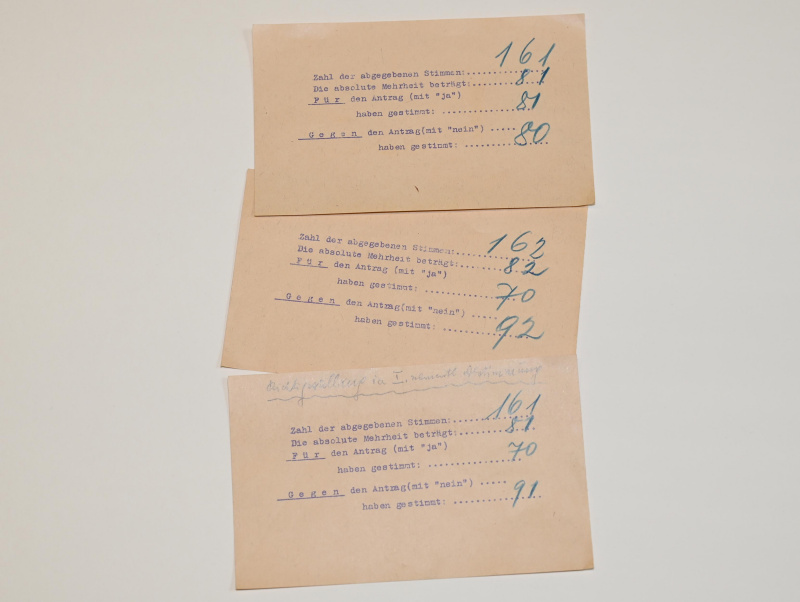 Zahl der abgegebenen Stimmen:.............. 161
Die absolute Mehrheit beträgt:............. 81
F ü r den Antrag (mit "ja")
haben gestimmt: ................. 81
G e g e n den Antrag(mit "nein") .....
haben gestimmt: ................. 80
Zahl der abgegebenen Stimmen:.............. 162
Die absolute Mehrheit beträgt:............. 82
F ü r den Antrag (mit "ja")
haben gestimmt: ................. 70
G e g e n den Antrag(mit "nein") .....
haben gestimmt: ................. 92
in I. Abstimmung
Zahl der abgegebenen Stimmen:.............. 161
Die absolute Mehrheit beträgt:............. 81
F ü r den Antrag (mit "ja")
haben gestimmt: ................. 70
G e g e n den Antrag(mit "nein") .....
haben gestimmt: ................. 91